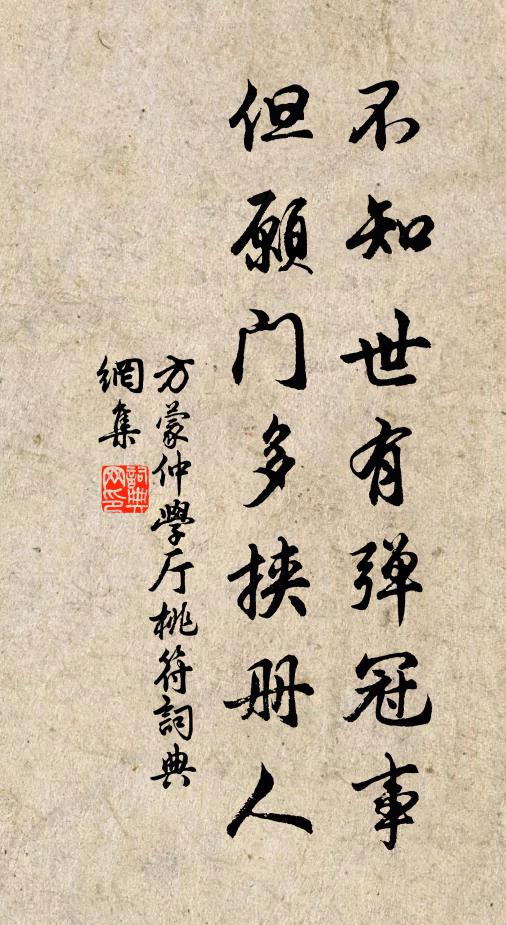 不知世有弹冠事
但愿门多挟册人
方蒙仲學厅桃符詞典
網集
詞典
网印